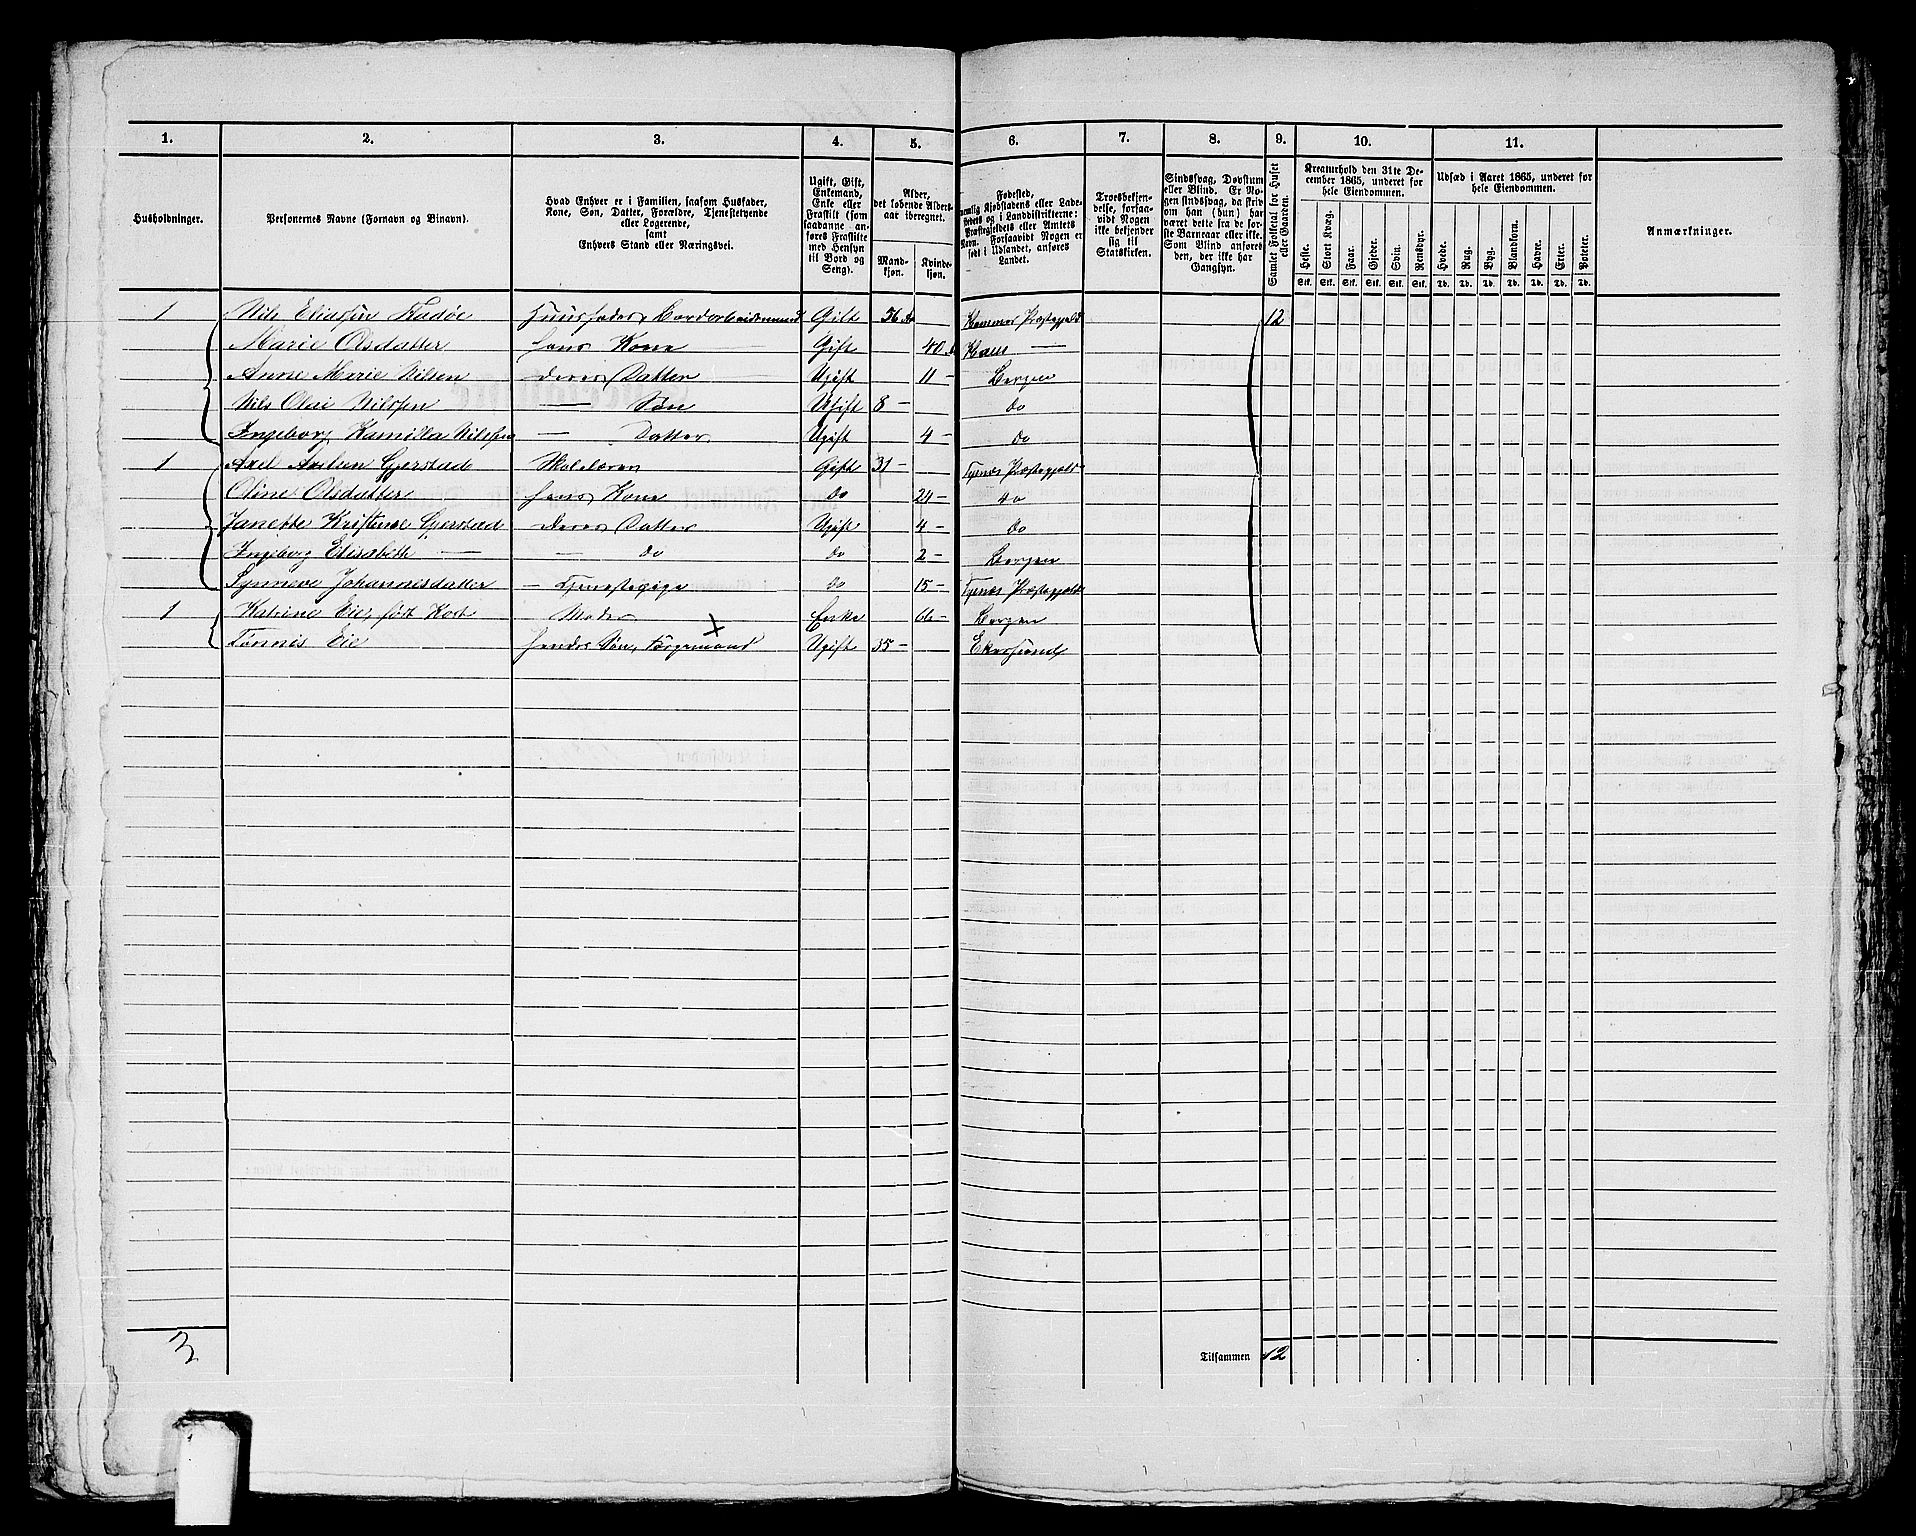 1. 2. 3. 4. 5. 6. 7. 8. 9. 10. 11.
Husholdninger.
Personernes Navne (Fornavn og Binavn).
Hvad Enhver er i Familien, saasom Husfader,
Kone, Søn, Datter, Forældre, Tjenestetyende
eller Logerende,
samt
Enhvers Stand eller Næringsvei.
Ugift, Gift,
Enkemand,
Enke eller
Fraskilt (som
saadanne an-
føres Fraskilte
med Hensyn
til Bord og
Seng).
Alder,
det løbende Alders-
aar iberegnet.
Mand-
kjøn.
Kvinde-
kjøn.
Fødested,
nemlig Kjøbstadens eller Lade-
stedets og i Landdistrikterne:
Præstegjeldets eller Amtets
Navn. Forsaavidt Nogen er
født i Udlandet, anføres
Landet.
Troesbekjen-
delse, forsaa-
vidt Nogen
ikke bekjender
sig til
Statskirken.
Sindssvag, Døvstum
eller Blind. Er No-
gen sindssvag, da skriv
om han (hun) har
været dette fra de før-
ste Barneaar eller ikke.
Som Blind anføres
den, der ikke har
Gangsyn.
Samlet Folketal for Huset
eller Gaarden.
Kreaturhold den 31te De-
cember 1865, underet for
hele Eiendommen.
Heste. Stort Kvæg. Faar. Gjeder. Svin. Rensdyr.
Stk. Stk. Stk. Stk. Stk. Stk.
Udsæd i Aaret 1865, underet for
hele Eiendommen.
Hvede. Rug. Byg. Blandkorn. Havre. Erter. Poteter.
Td. Td. Td. Td. Td. Td. Td.
Anmærkninger.
1 Nils Eliassen Radøe Huusfader, Bordarbeidsmand Gift 56 Aar Hammer Præstegjeld 12
Marie Olsdatter hans Kone Gift 40 Haus —
Anne Marie Nilsen deres Datter Ugift 11 — Bergen
Nils Olai Nilssen — Søn Ugift 8 — do
Ingeborg Kamilla Nilssen — Datter Ugift 4 — do
1 Axel Gjerstad Skolelærer Gift 31 — Tysnæs Præstegjeld
Oline Olsdatter hans Kone do 24 — do
Janette Kristense Gjerstad deres Datter Ugift 4 — do
Ingeborg Elisabeth — — do do 2 — Bergen
Synneve Johannesdatter — Tjenestepige do 15 — Tysnæs Præstegjeld
1 Katrine Eie, født Kost Moder Enke Bergen
Tønnis Eie hendes Søn, Ugift 35 — Ekersund
3
Tilsammen 12